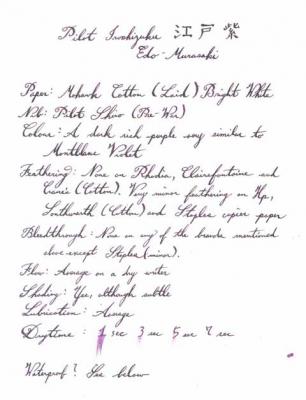 Pilot Iroshizuku 江戸紫
Edo-Murasaki
Paper: Mohawk Cotton (Laid) Bright White
Nib: Pilot Shiro (Pre-War)
Colour: A dark rich purple very similar to
Montblanc Violet
Feathering: None on Rhodia, Clairefontaine and
Crane (Cotton). Very minor feathering on Hp,
Southworth (Cotton) and Staples copier paper
Bleedthrough: None on any of the brands mentioned
above except Staples (minor).
Flow: Average on a dry writer
Shading: Yes, although subtle
Lubrication: Average
Drytime: 1 sec 3 sec 5 sec 7 sec
Waterproof? See below